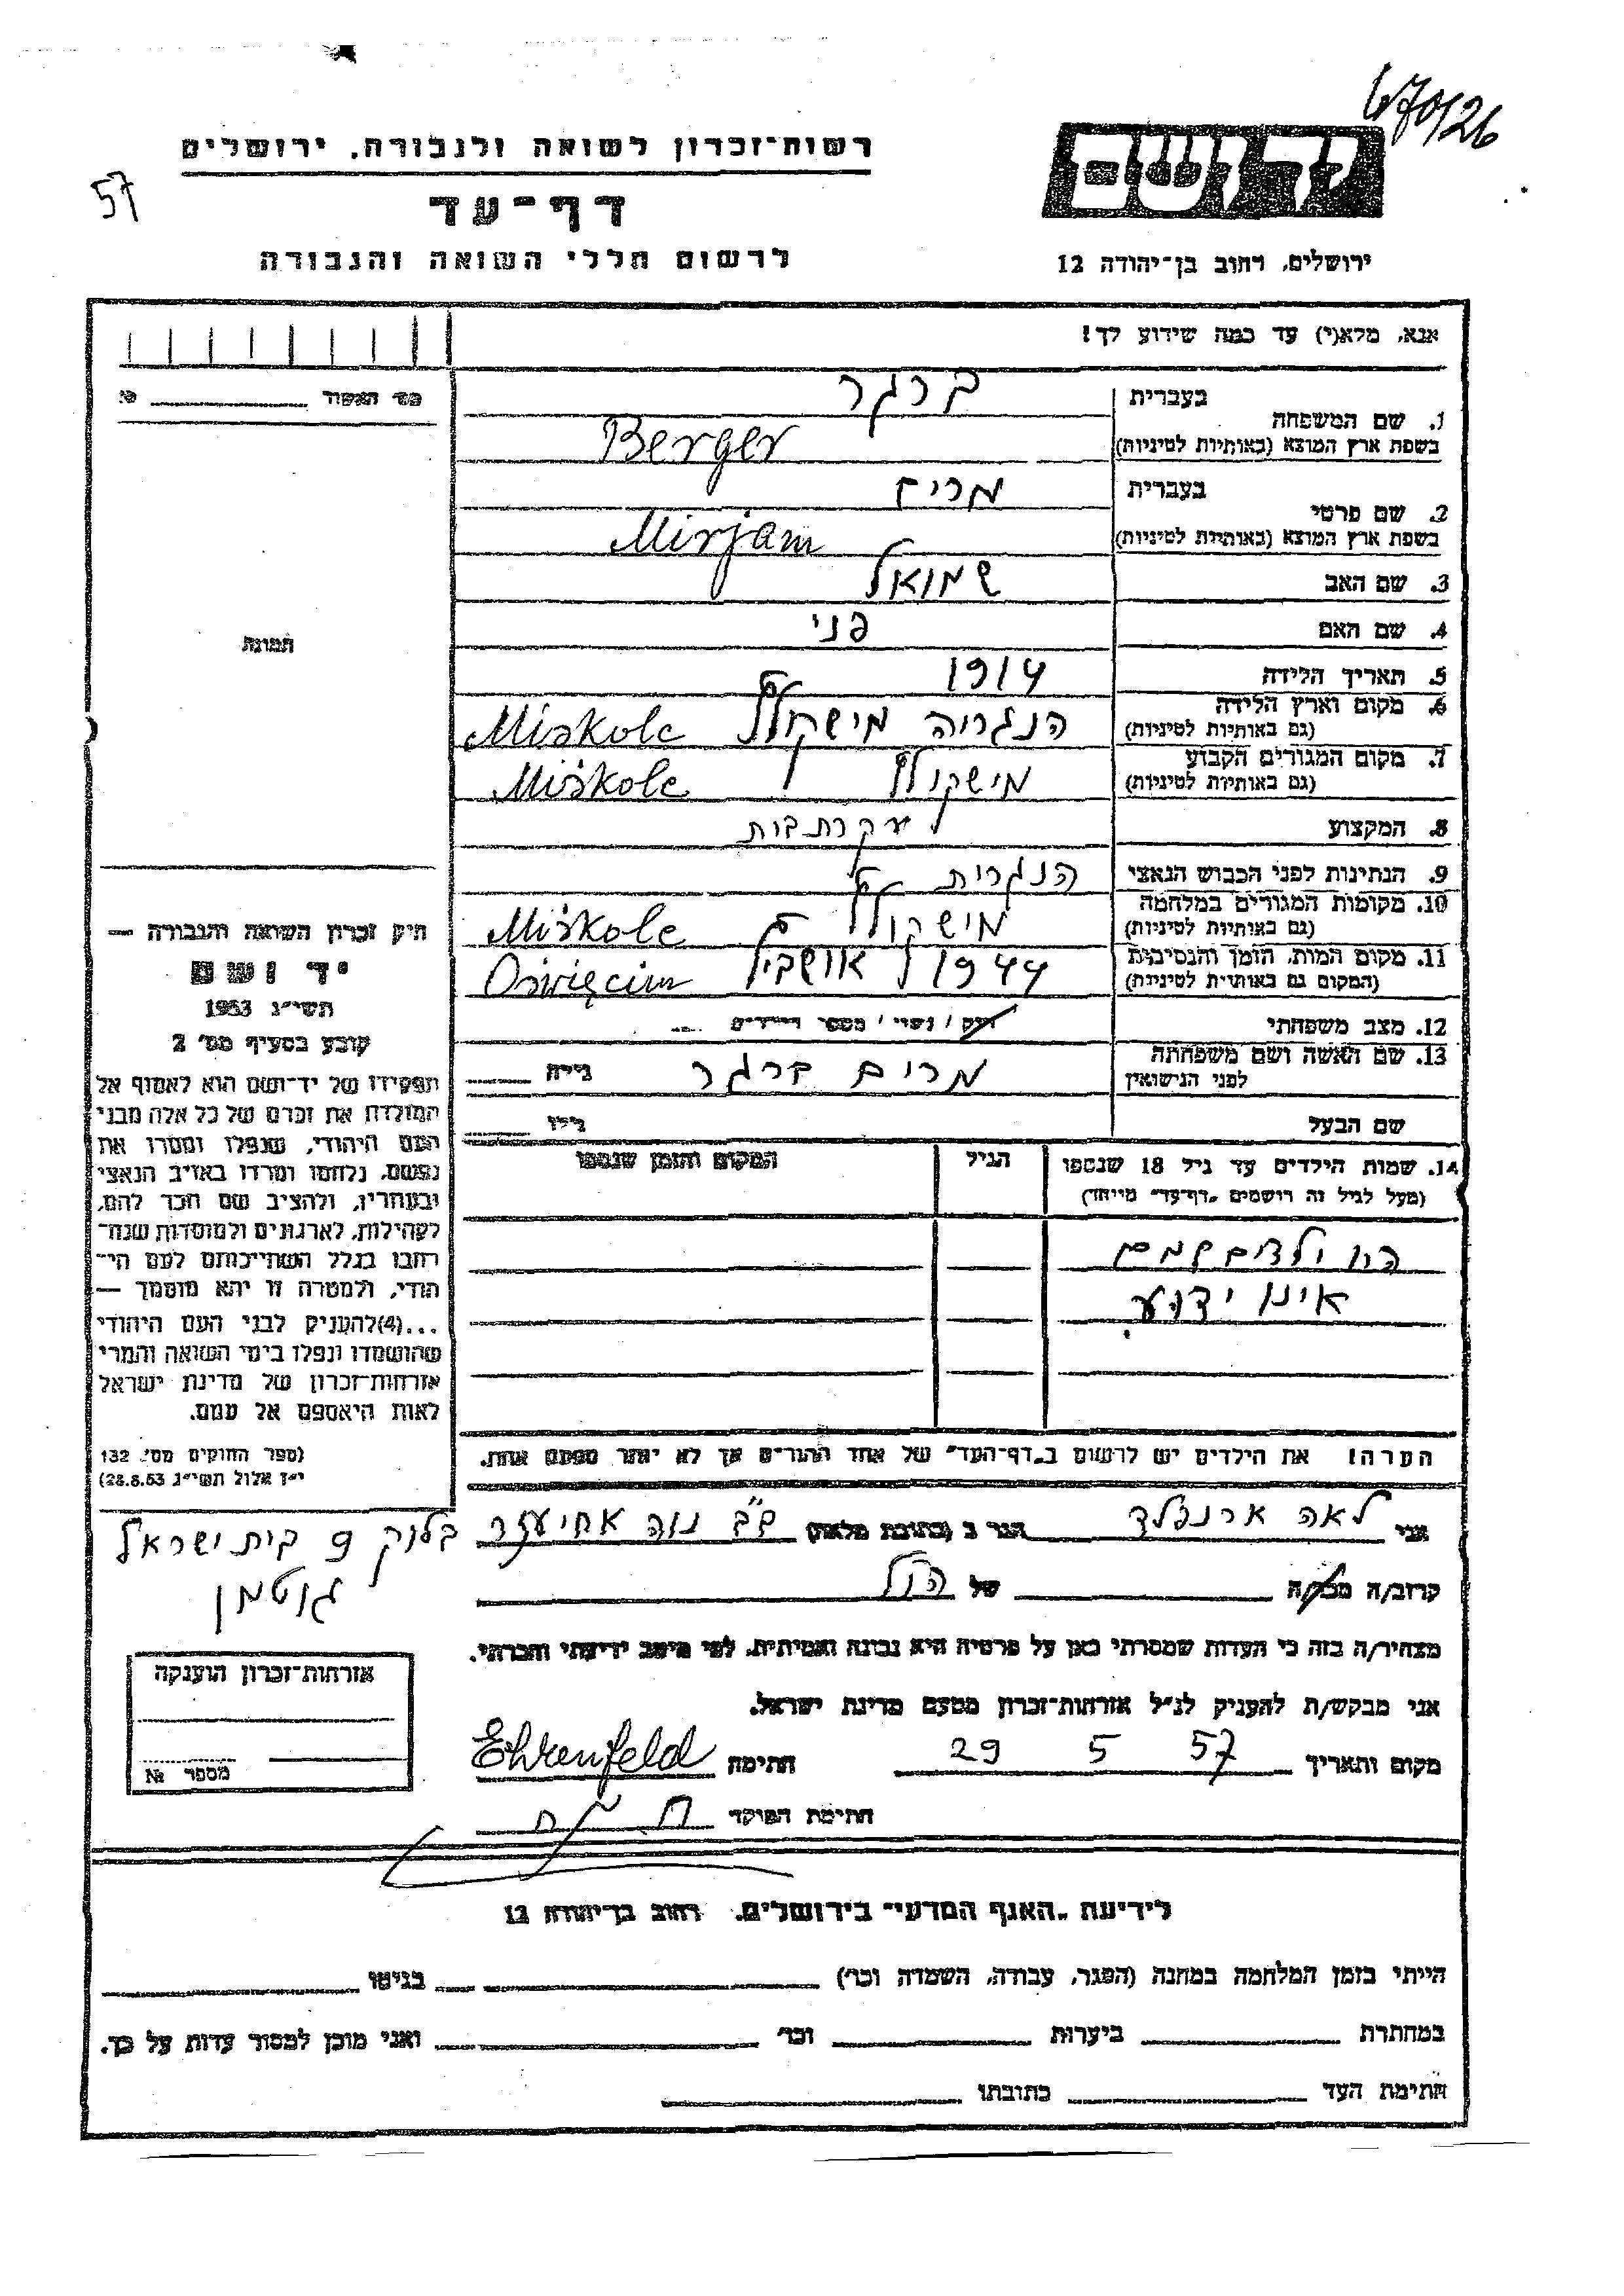 670/26
רשות־זכרון לשואה ולגבורה, ירושלים
57
דף־עד
לרשום חללי השואה והגבורה
ידושם
ירושלים, רחוב בן־יהודה 12
אנא, מלא(י) עד כמה שידוע לך!
מס' האשור №
1. שם המשפחה
בעברית
ברגר
בשפת ארץ המוצא (באותיות לטיניות)
Berger
2. שם פרטי
בעברית
מרים
בשפת ארץ המוצא (באותיות לטיניות)
Mirjam
3. שם האב
שמואל
4. שם האם
פני
תמונה
5. תאריך הלידה
1914
6. מקום וארץ הלידה
(גם באותיות לטיניות)
הנגריה מישקולץ Miskolc
7. מקום המגורים הקבוע
(גם באותיות לטיניות)
מישקולץ Miskolc
8. המקצוע
עקרת בית
9. הנתינות לפני הכבוש הנאצי
הנגרית
10. מקומות המגורים במלחמה
(גם באותיות לטיניות)
מישקולץ Miskolc
11. מקום המות, הזמן והנסיבות
(המקום גם באותיות לטיניות)
1944 Oświęcim
12. מצב משפחתי
רווק / נשוי / מספר הילדים
13. שם האשה ושם משפחתה
לפני הנישואין
מרים ברגר גילה
שם הבעל גילו
14. שמות הילדים עד גיל 18 שנספו
(מעל לגיל זה רושמים "דף־עד" מיוחד)
הגיל
המקום והזמן שנספו
היו ילדים שמם
אינו ידוע
הערה! את הילדים יש לרשום ב"דף־העד" של אחד ההורים אך לא יותר מפעם אחת.
חיק זכרון השואה והגבורה —
יד ושם
תשי"ג 1953
קובע בסעיף מס' 2
תפקידו של יד־ושם הוא לאסוף אל
המולדת את זכרם של כל אלה מבני
העם היהודי, שנפלו ומסרו את
נפשם, נלחמו ומרדו באויב הנאצי
ובעוזריו, ולהציב שם וזכר להם,
לקהילות, לארגונים ולמוסדות שנח־
רבו בגלל השתייכותם לעם הי־
הודי, ולמטרה זו יהא מוסמך —
...(4)להעניק לבני העם היהודי
שהושמדו ונפלו בימי השואה והמרי
אזרחות־זכרון של מדינת ישראל
לאות היאספם אל עמם.
(ספר החוקים מס' 132
י"ז אלול תשי"ג 28.8.53)
אני לאה ארנפלד הגר ב (כתובת מלאה) ב"ב נוה אחיעזר בלוק 9 בית ישראל
גוטמן
קרוב/ה מכר/ה של הנ"ל
מצהיר/ה בזה כי העדות שמסרתי כאן על פרטיה היא נכונה ואמיתית, לפי מיטב ידיעתי והכרתי.
אני מבקש/ת להעניק לנ"ל אזרחות־זכרון מטעם מדינת ישראל.
מקום ותאריך 29 5 57 חתימה Ehrenfeld
חתימת הפוקד
אזרחות־זכרון הוענקה
מספר №
לידיעת "האגף המדעי" בירושלים, רחוב בן־יהודה 12
הייתי בזמן המלחמה במחנה (הסגר, עבודה, השמדה וכו') בגיטו
במחתרת ביערות וכו' ואני מוכן למסור עדות על כך.
חתימת העד כתובתו